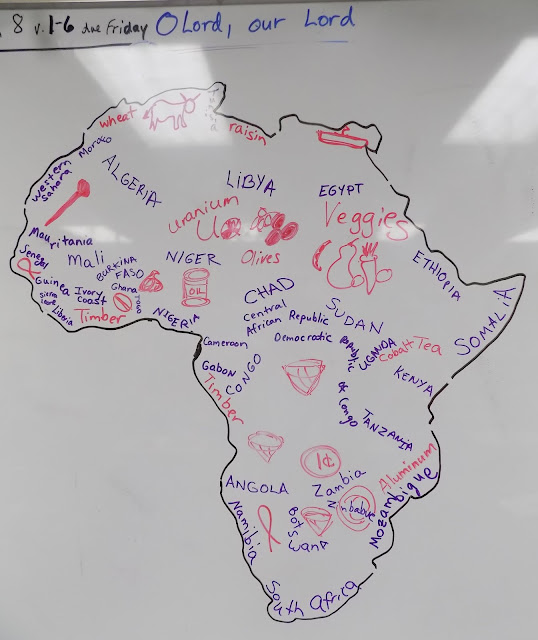 8 v. 1-6 due Friday O Lord, our Lord
wheat
Tunisia
raisin
Moroco
Western
Sahara
ALGERIA
LIBYA
EGYPT
uranium
U
Veggies
Mauritania
Senegal
Mali
BURKINA
FASO
NIGER
Olives
ETHIOPIA
Guinea
Ivory
Coast
Ghana
TOGO
OIL
CHAD
SUDAN
SOMALIA
Sierra
Leone
Liberia
Timber
NIGERIA
Central
African Republic
Democratic Republic of Congo
UGANDA
Cobalt
Tea
Cameroon
Gabon
CONGO
KENYA
Timber
TANZANIA
1¢
ANGOLA
Zambia
Aluminum
Zimbabue
Mozambique
Namibia
Botswana
South Africa